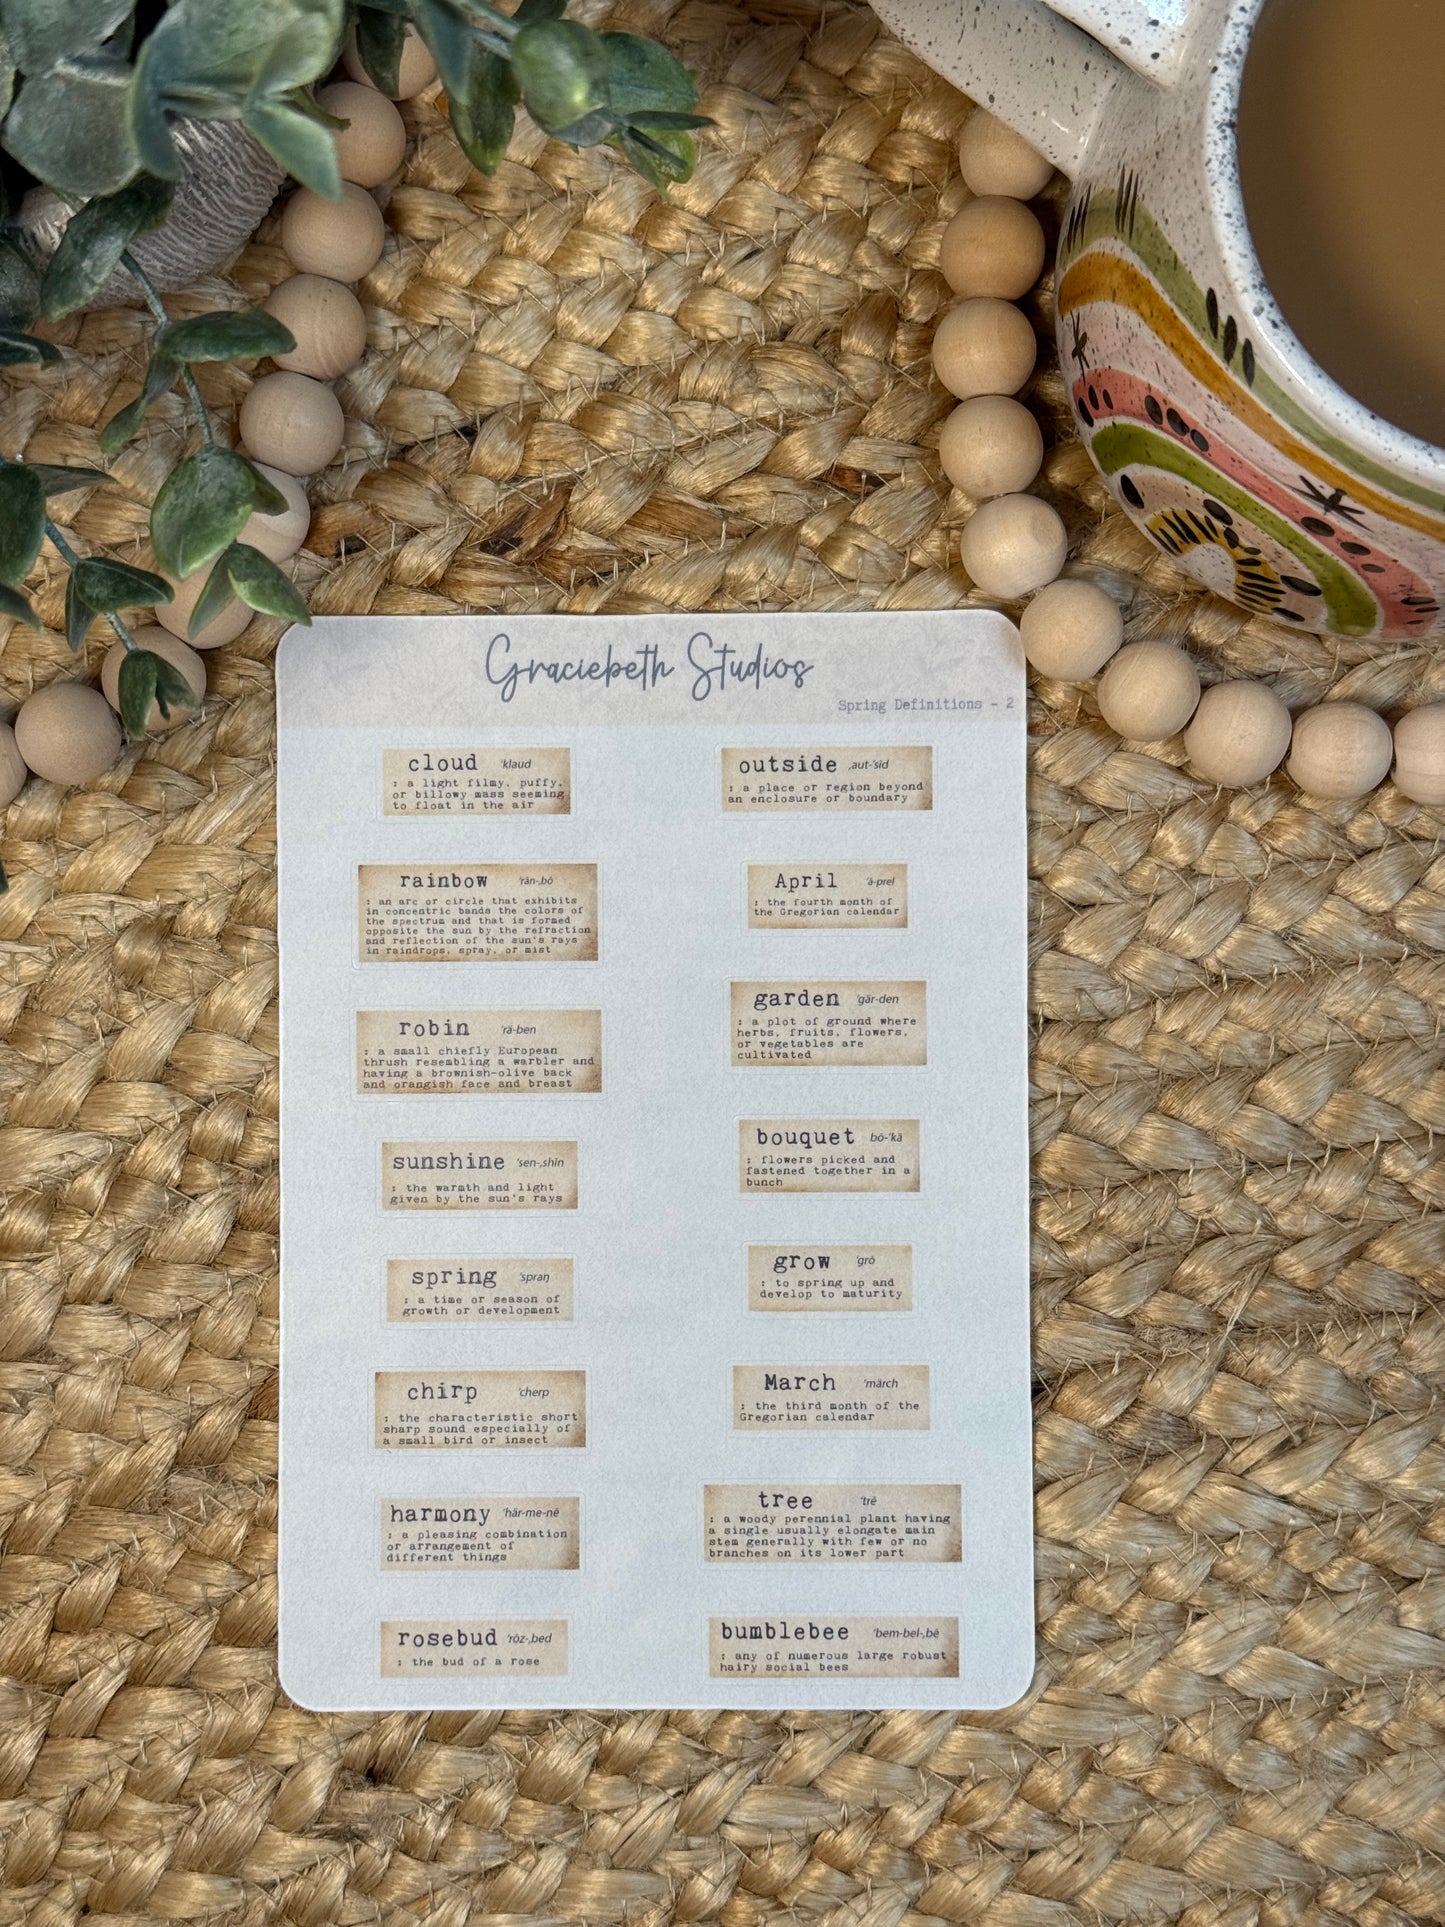 Graciebeth Studios
Spring Definitions - 2
cloud 'klaud
: a light filmy, puffy,
or billowy mass seeming
to float in the air
rainbow 'rān-,bō
: an arc or circle that exhibits
in concentric bands the colors of
the spectrum and that is formed
opposite the sun by the refraction
and reflection of the sun's rays
in raindrops, spray, or mist
robin 'rä-ben
: a small chiefly European
thrush resembling a warbler and
having a brownish-olive back
and orangish face and breast
sunshine 'sen-,shīn
: the warmth and light
given by the sun's rays
spring 'spraŋ
: a time or season of
growth or development
chirp 'cherp
: the characteristic short
sharp sound especially of
a small bird or insect
harmony 'här-me-nē
: a pleasing combination
or arrangement of
different things
rosebud 'rōz-,bed
: the bud of a rose
outside ,aut-'sīd
: a place or region beyond
an enclosure or boundary
April 'ā-prel
: the fourth month of
the Gregorian calendar
garden 'gär-den
: a plot of ground where
herbs, fruits, flowers,
or vegetables are
cultivated
bouquet bō-'kā
: flowers picked and
fastened together in a
bunch
grow 'grō
: to spring up and
develop to maturity
March 'märch
: the third month of the
Gregorian calendar
tree 'trē
: a woody perennial plant having
a single usually elongate main
stem generally with few or no
branches on its lower part
bumblebee 'bem-bel-,bē
: any of numerous large robust
hairy social bees